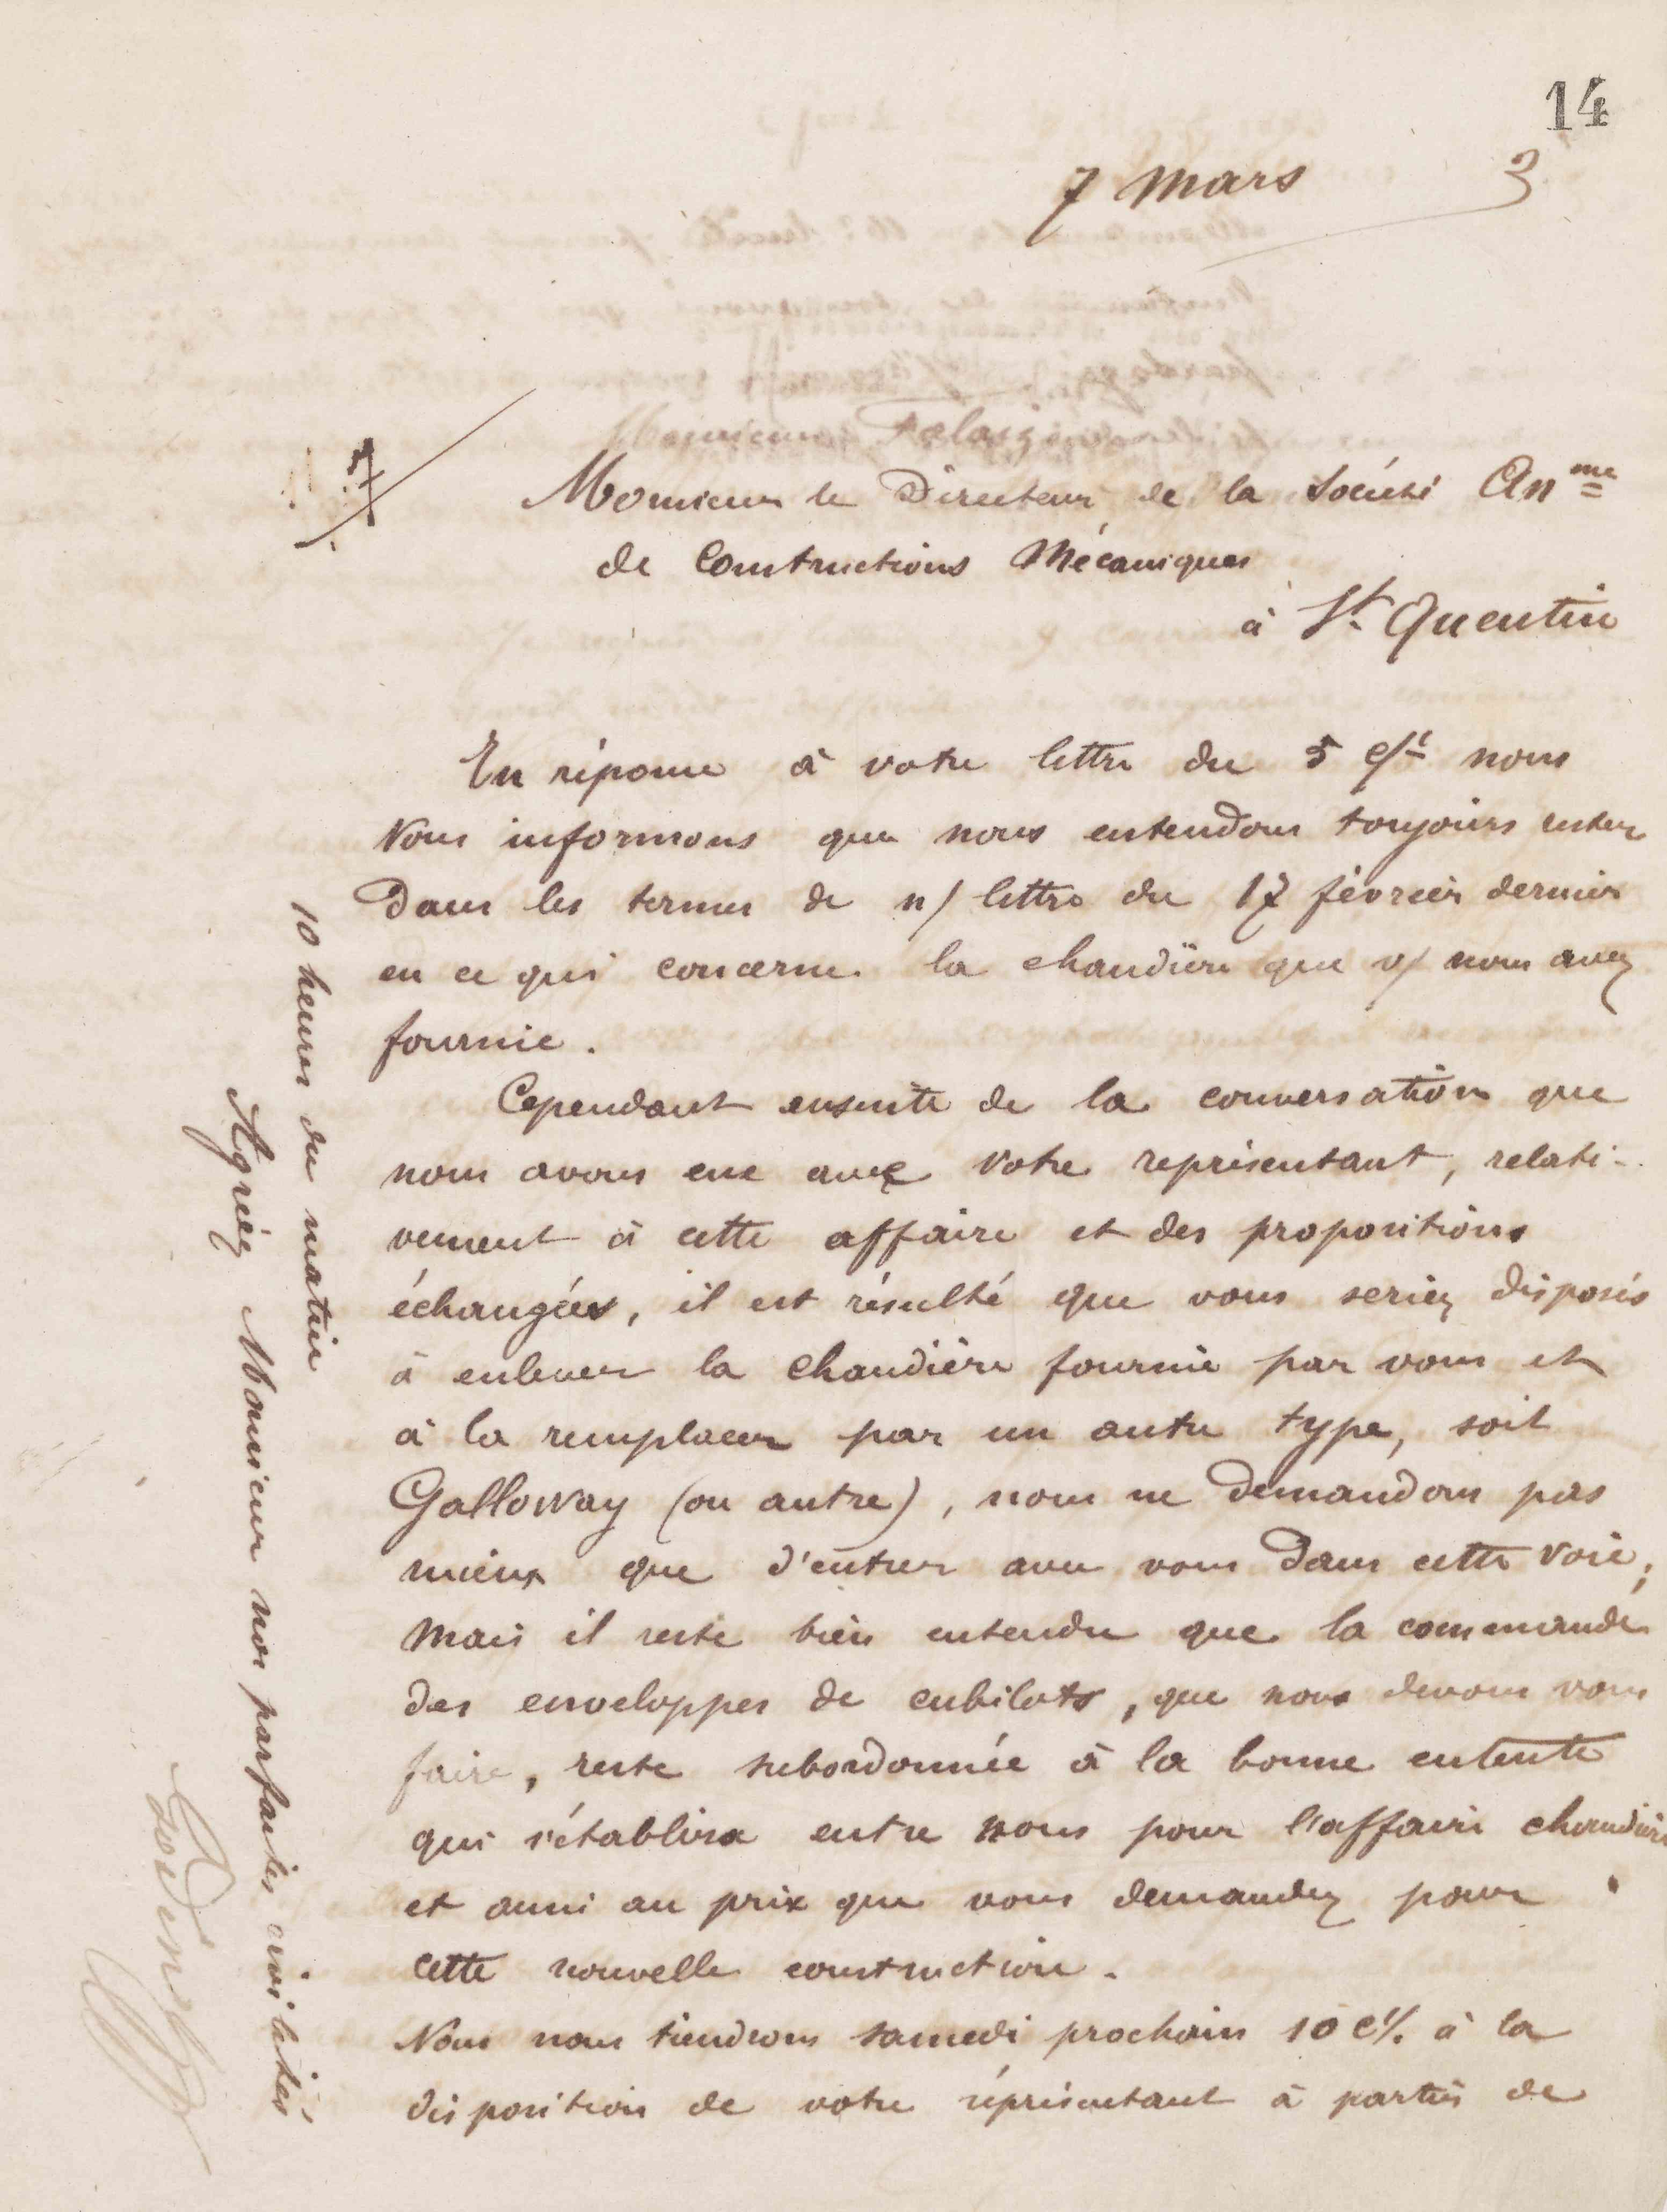 14
7 Mars 3
Monsieur le Directeur de la Société An.me
de Constructions Mécaniques
à St. Quentin
En réponse à votre lettre du 5 c/t nous
Vous informons que nous entendons toujours rester
Dans les termes de n/ lettre du 17 février dernier
en ce qui concerne la chaudière que v/ nous avez
fournie.
Cependant ensuite de la conversation que
nous avons eue avec votre représentant, relati-
vement à cette affaire et des propositions
échangées, il est résulté que vous seriez disposés
à enlever la chaudière fournie par vous et
à la remplacer par un autre type, soit
Galloway (ou autre), nous ne demandons pas
mieux que d'entrer avec vous dans cette voie;
Mais il reste bien entendu que la commande
des enveloppes de cubilots, que nous devons vous
faire, reste subordonnée à la bonne entente
qui s'établira entre nous pour l'affaire chaudière
et aussi au prix que vous demandez pour
cette nouvelle construction.
Nous nous tiendrons samedi prochain 10 c/t. à la
disposition de votre représentant à partir de
10 heures du matin
Agréez Monsieur nos parfaites civilités
Godin